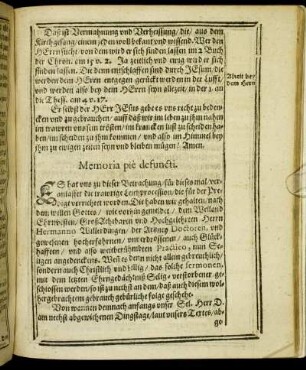 Daß ist Vermahnung vnd Verheissung / die / auß dem
Kirchgesang / einem jedem woll bekant vnd wissend. Wer den
HErrn sucht / von dem wird er sich finden lassen im 2 Buch
der Chron. am 15 v. 2. Ja zeitlich vnd ewig wird er sich
finden lassen. Die dem entschlaffen sind durch JEsum, die
werden dem HErrn entgegen gerückt werden in der Lufft,
vnd werden also bey dem HErrn seyn allezeit, in der 1. an
die Thess. am 4 v. 17.
Er selbst der HErr JEsus gebe es vns recht zu beden-
cken vnd zu gebrauchen / auff daß wir im leben zu ihm nahen
im trawren vns sein trösten / im krancken lust zu scheiden ha-
ben / im scheiden zu ihm kommen / vnd also im Himmel bey
ihm ewig zeiten seyn vnd bleiben mügen / Amen.
Allzeit bey
dem Herrn
Memoria piè defuncti.
ES hat vns zu dieser Betrachtung / für dieses mal / ver-
anlasset die trawrige Leichprocession, die für der Pre-
digt verrichtet worden. Die haben wir gehalten / nach
dem willen Gottes / wie vorhin gemeldet / dem Weiland
Ehrnvesten, GroßAchtbarn vnd Hochgelahrten Herrn
Hermanno
der Artzney Doctoren, vnd
gewesenen hocherfahrnen / vnverdrossenen / auch Glück-
hafften / vnd also weitberühmbten Practico, nun Se-
ligen angedenckens. Weil es denn nicht allein gebreuchlich /
sondern auch Christlich vnd billig / das solche sermonen,
mit dem letzten Ehrngedächtnüß Selig / verstorbener ge-
schlossen werden / so ist zu recht an dem / daß auch diesem wol-
hergebrachtem gebrauch gebürliche folge geschehe.
Von wannen demnach anfangs vnser Sel. Herr D.
am nechst abgewichenen Dingstage / laut vnsers Textes, ab-
ge